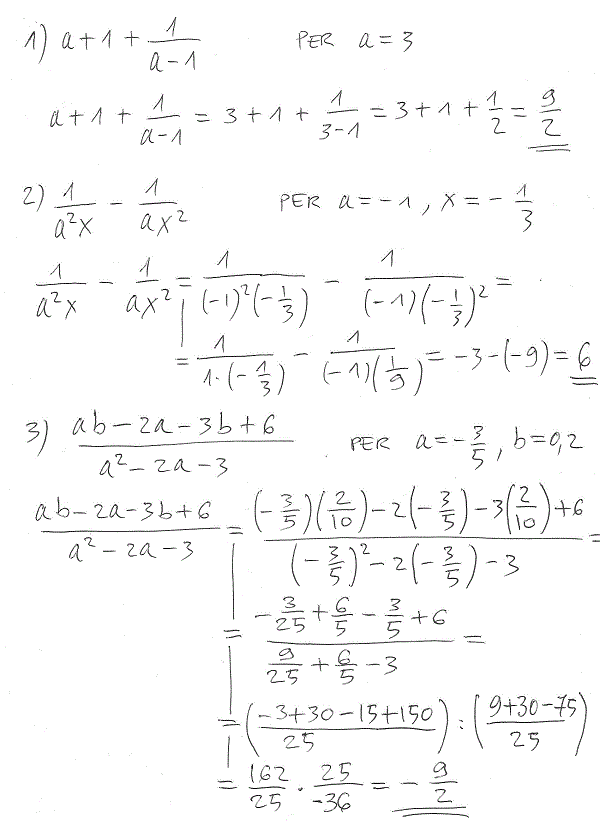 1) a+1+\frac{1}{a-1} PER a=3
a+1+\frac{1}{a-1} = 3+1+\frac{1}{3-1} = 3+1+\frac{1}{2} = \frac{9}{2}
2) \frac{1}{a²x} - \frac{1}{ax²} PER a=-1, x=-\frac{1}{3}
\frac{1}{a²x} - \frac{1}{ax²} = \frac{1}{(-1)²(-\frac{1}{3})} - \frac{1}{(-1)(-\frac{1}{3})²} =
= \frac{1}{1·(-\frac{1}{3})} - \frac{1}{(-1)(\frac{1}{9})} = -3-(-9) = 6
3) \frac{ab-2a-3b+6}{a²-2a-3} PER a=-\frac{3}{5}, b=0,2
\frac{ab-2a-3b+6}{a²-2a-3} = \frac{(-\frac{3}{5})(\frac{2}{10})-2(-\frac{3}{5})-3(\frac{2}{10})+6}{(-\frac{3}{5})²-2(-\frac{3}{5})-3} =
= \frac{-\frac{3}{25}+\frac{6}{5}-\frac{3}{5}+6}{\frac{9}{25}+\frac{6}{5}-3} =
= (\frac{-3+30-15+150}{25}) : (\frac{9+30-75}{25})
= \frac{162}{25} · \frac{25}{-36} = -\frac{9}{2}